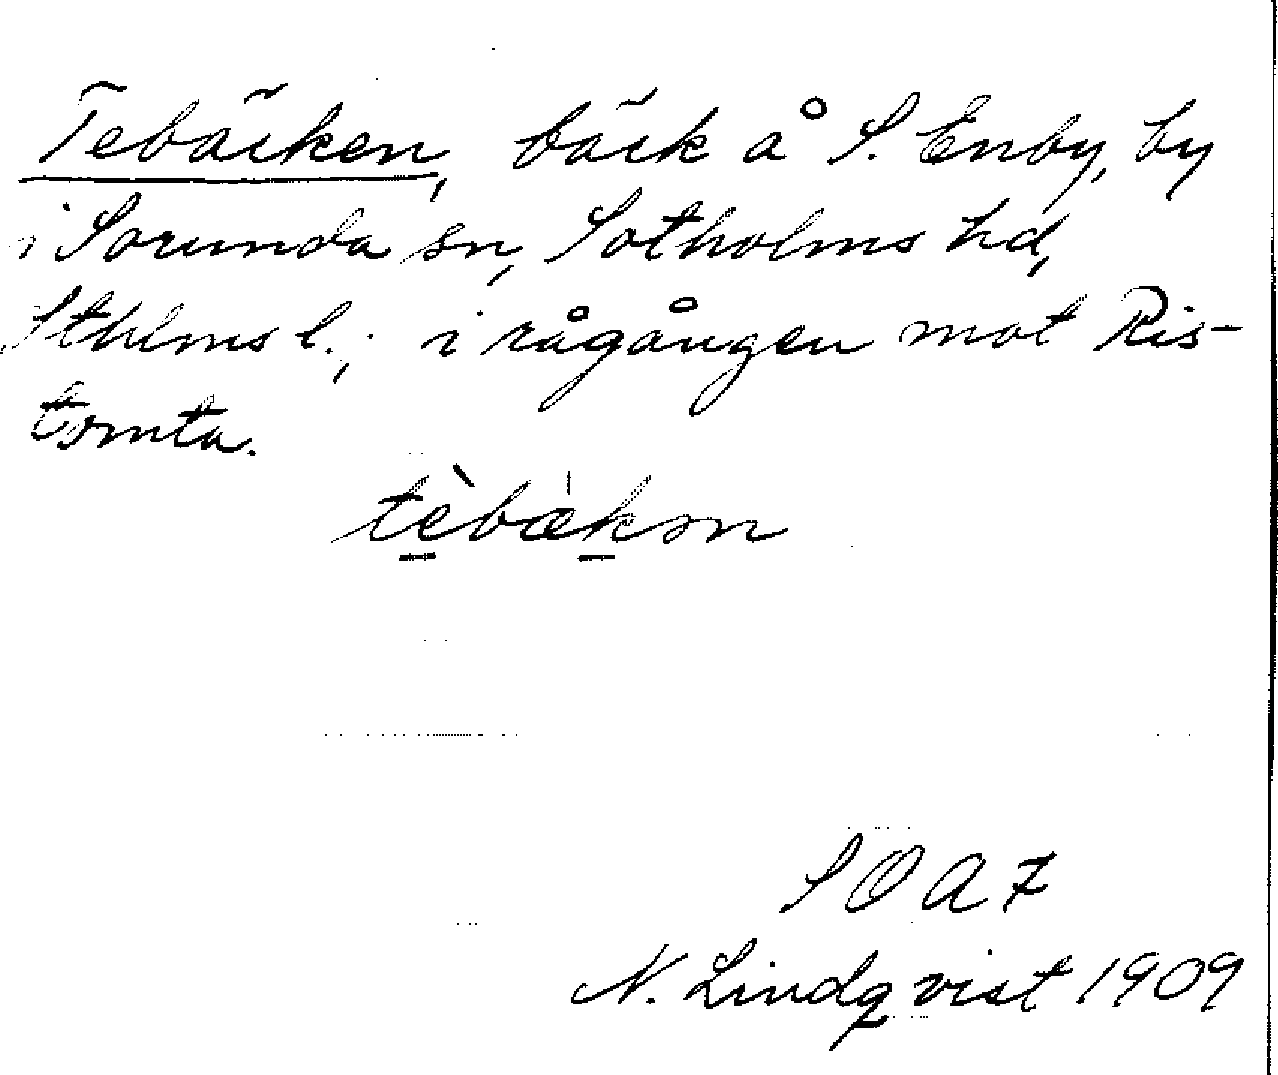 Tebäcken, bäck å S. Enby, by
i Sorunda sn, Sotholms hd,
Sthlms l.; i rågången mot Ris-
tomta.
tèbækən
SOA 7
N. Lindqvist 1909